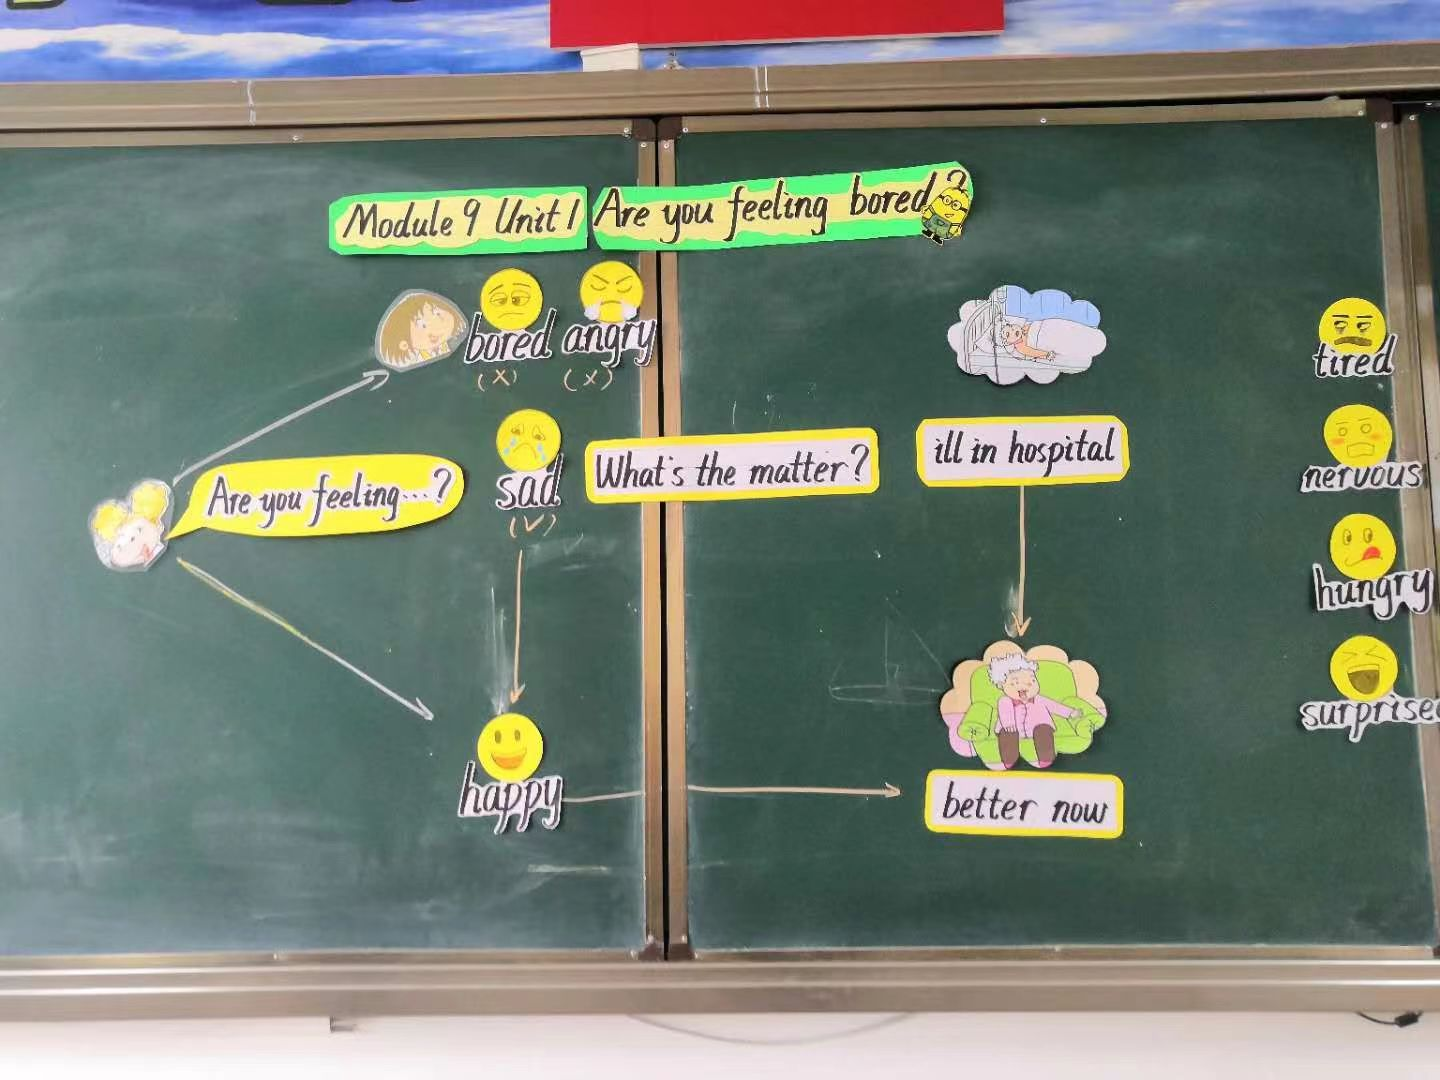 Module 9 Unit 1 Are you feeling bored?
bored angry
(×) (×)
Are you feeling...?
sad
(√)
What's the matter?
ill in hospital
happy
better now
tired
nervous
hungry
surprise